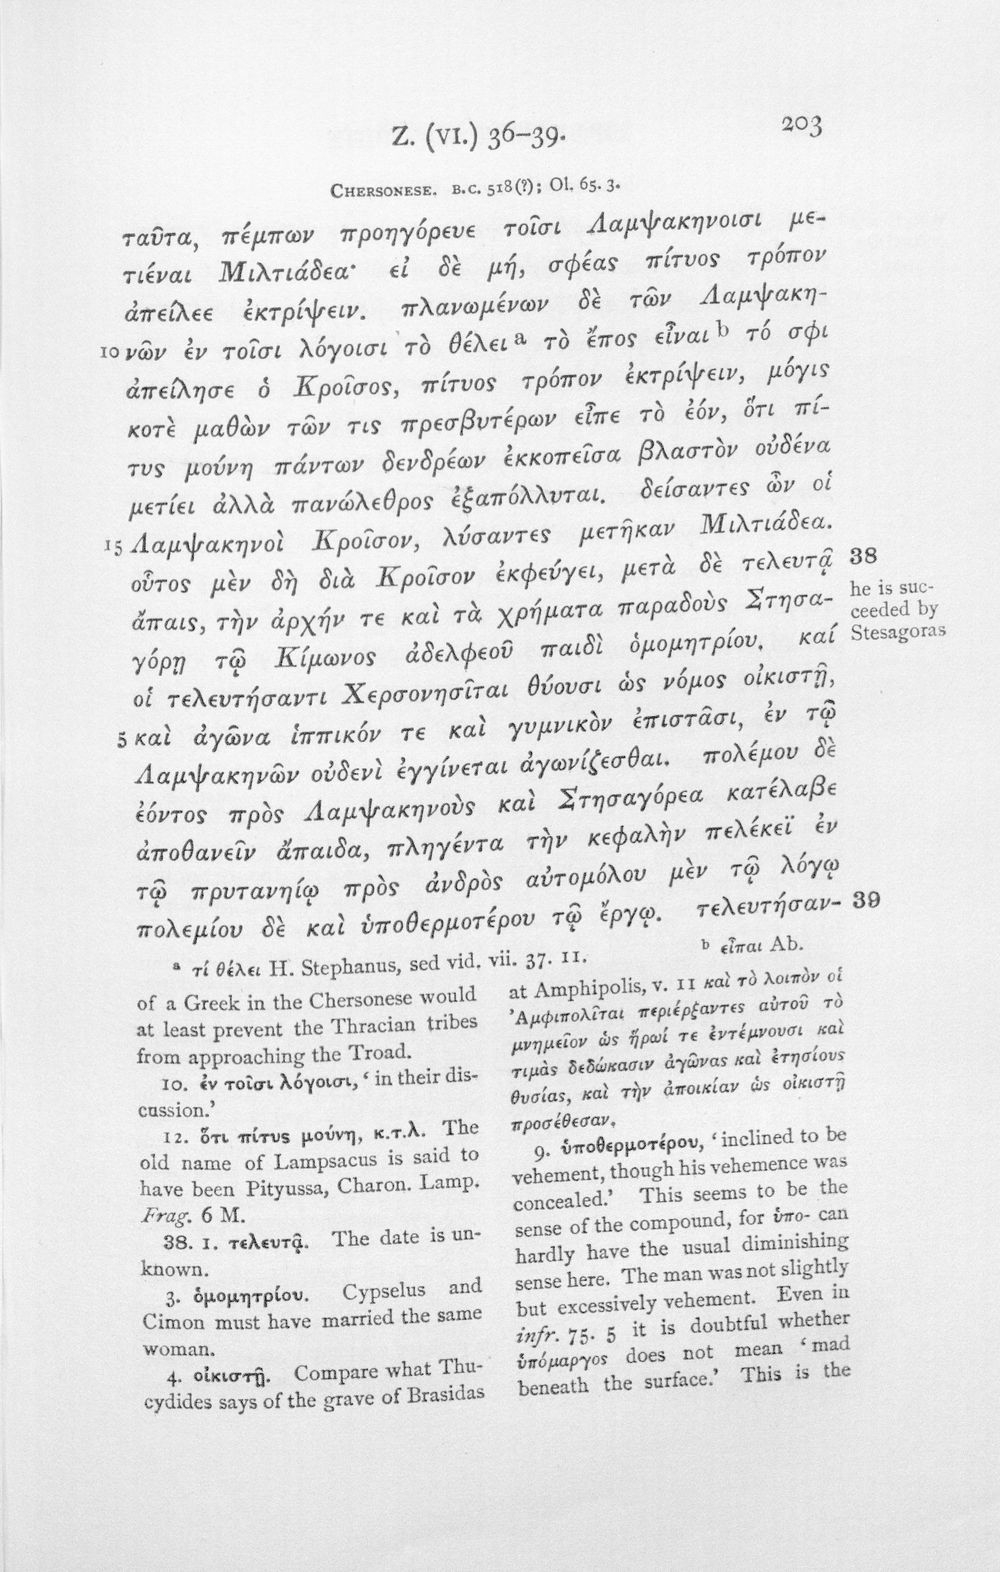 Z. (VI.) 36–39.
203
CHERSONESE. B.C. 518(?); Ol. 65. 3.
ταῦτα, πέμπων προηγόρευε τοῖσι Λαμψακηνοισι με-
τιέναι Μιλτιάδεα· εἰ δὲ μή, σφέας πίτυος τρόπον
ἀπείλεε ἐκτρίψειν. πλανωμένων δὲ τῶν Λαμψακη-
10 νῶν ἐν τοῖσι λόγοισι τὸ θέλει a τὸ ἔπος εἶναι b τό σφι
ἀπείλησε ὁ Κροῖσος, πίτυος τρόπον ἐκτρίψειν, μόγις
κοτὲ μαθὼν τῶν τις πρεσβυτέρων εἶπε τὸ ἐόν, ὅτι πί-
τυς μούνη πάντων δενδρέων ἐκκοπεῖσα βλαστὸν οὐδένα
μετίει ἀλλὰ πανώλεθρος ἐξαπόλλυται. δείσαντες ὦν οἱ
15 Λαμψακηνοὶ Κροῖσον, λύσαντες μετῆκαν Μιλτιάδεα.
οὗτος μὲν δὴ διὰ Κροῖσον ἐκφεύγει, μετὰ δὲ τελευτᾷ 38
ἄπαις, τὴν ἀρχήν τε καὶ τὰ χρήματα παραδοὺς Στησα-
he is suc-
ceeded by
Stesagoras
γόρῃ τῷ Κίμωνος ἀδελφεοῦ παιδὶ ὁμομητρίου. καί
οἱ τελευτήσαντι Χερσονησῖται θύουσι ὡς νόμος οἰκιστῇ,
5 καὶ ἀγῶνα ἱππικόν τε καὶ γυμνικὸν ἐπιστᾶσι, ἐν τῷ
Λαμψακηνῶν οὐδενὶ ἐγγίνεται ἀγωνίζεσθαι. πολέμου δὲ
ἐόντος πρὸς Λαμψακηνοὺς καὶ Στησαγόρεα κατέλαβε
ἀποθανεῖν ἄπαιδα, πληγέντα τὴν κεφαλὴν πελέκεϊ ἐν
τῷ πρυτανηίῳ πρὸς ἀνδρὸς αὐτομόλου μὲν τῷ λόγῳ
πολεμίου δὲ καὶ ὑποθερμοτέρου τῷ ἔργῳ. τελευτήσαν- 39
a τί θέλει H. Stephanus, sed vid. vii. 37. 11.
b εἶπαι Ab.
of a Greek in the Chersonese would
at least prevent the Thracian tribes
from approaching the Troad.
10. ἐν τοῖσι λόγοισι, ‘in their dis-
cussion.’
12. ὅτι πίτυς μούνη, κ.τ.λ. The
old name of Lampsacus is said to
have been Pityussa, Charon. Lamp.
Frag. 6 M.
38. 1. τελευτᾷ. The date is un-
known.
3. ὁμομητρίου. Cypselus and
Cimon must have married the same
woman.
4. οἰκιστῇ. Compare what Thu-
cydides says of the grave of Brasidas
at Amphipolis, v. 11 καὶ τὸ λοιπὸν οἱ
Ἀμφιπολῖται περιέρξαντες αὐτοῦ τὸ
μνημεῖον ὡς ἥρωί τε ἐντέμνουσι καὶ
τιμὰς δεδώκασιν ἀγῶνας καὶ ἐτησίους
θυσίας, καὶ τὴν ἀποικίαν ὡς οἰκιστῇ
προσέθεσαν.
9. ὑποθερμοτέρου, ‘inclined to be
vehement, though his vehemence was
concealed.’ This seems to be the
sense of the compound, for ὑπο- can
hardly have the usual diminishing
sense here. The man was not slightly
but excessively vehement. Even in
infr. 75. 5 it is doubtful whether
ὑπόμαργος does not mean ‘mad
beneath the surface.’ This is the